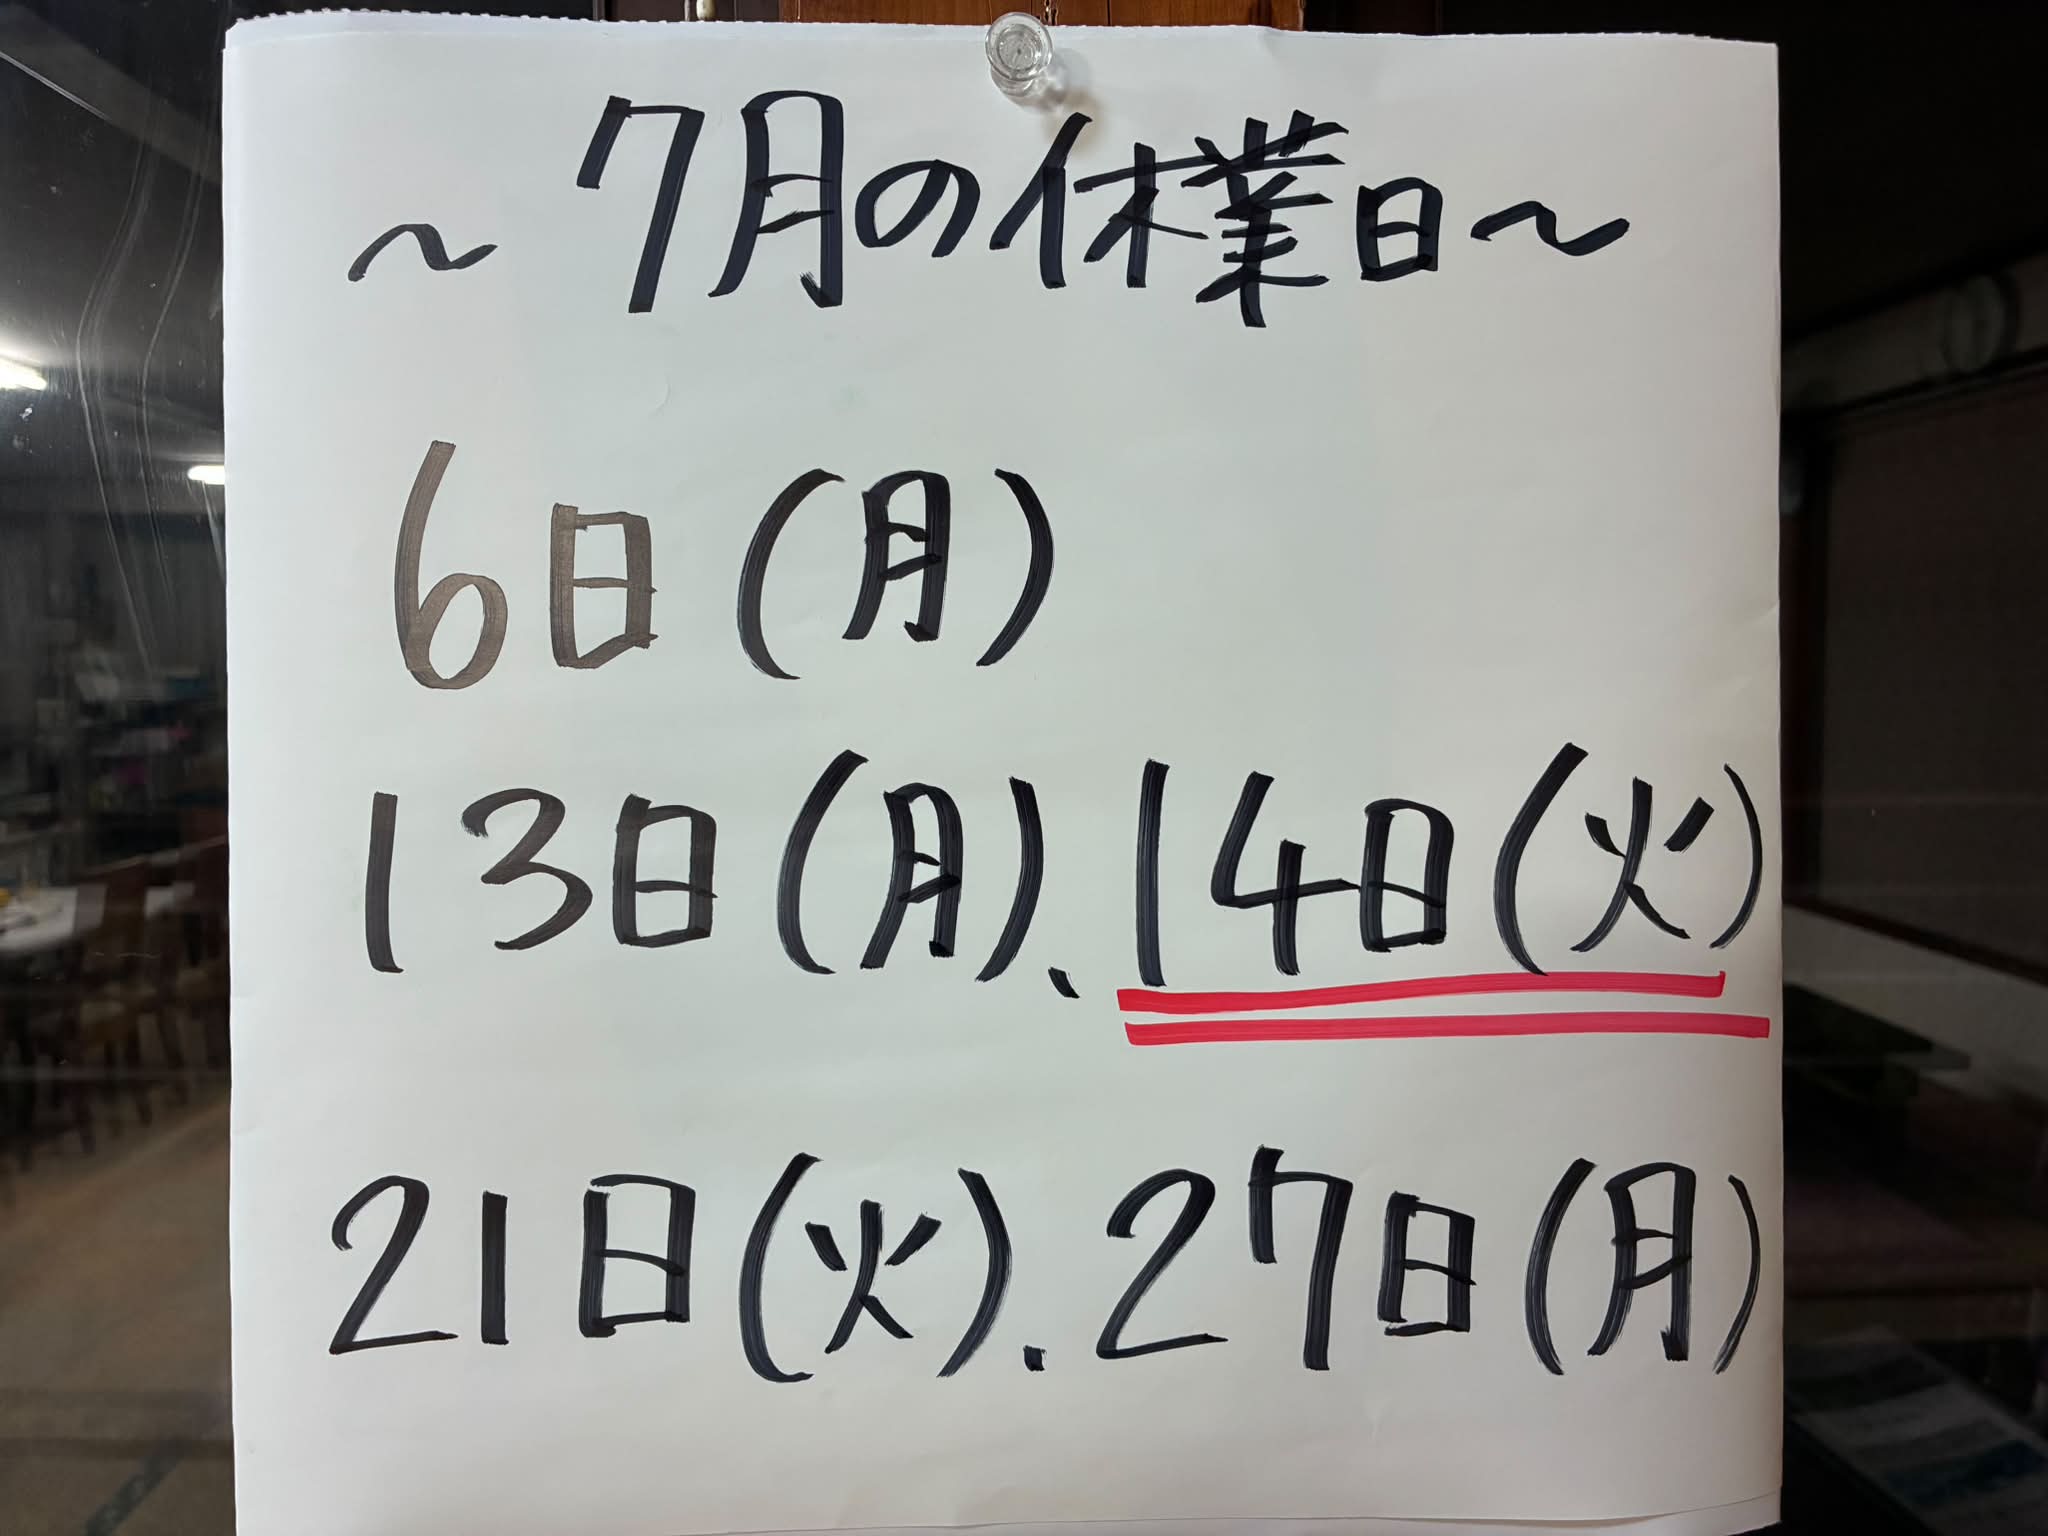 ～7月の休業日～
6日(月)
13日(月)、14日(火)
21日(火)、27日(月)